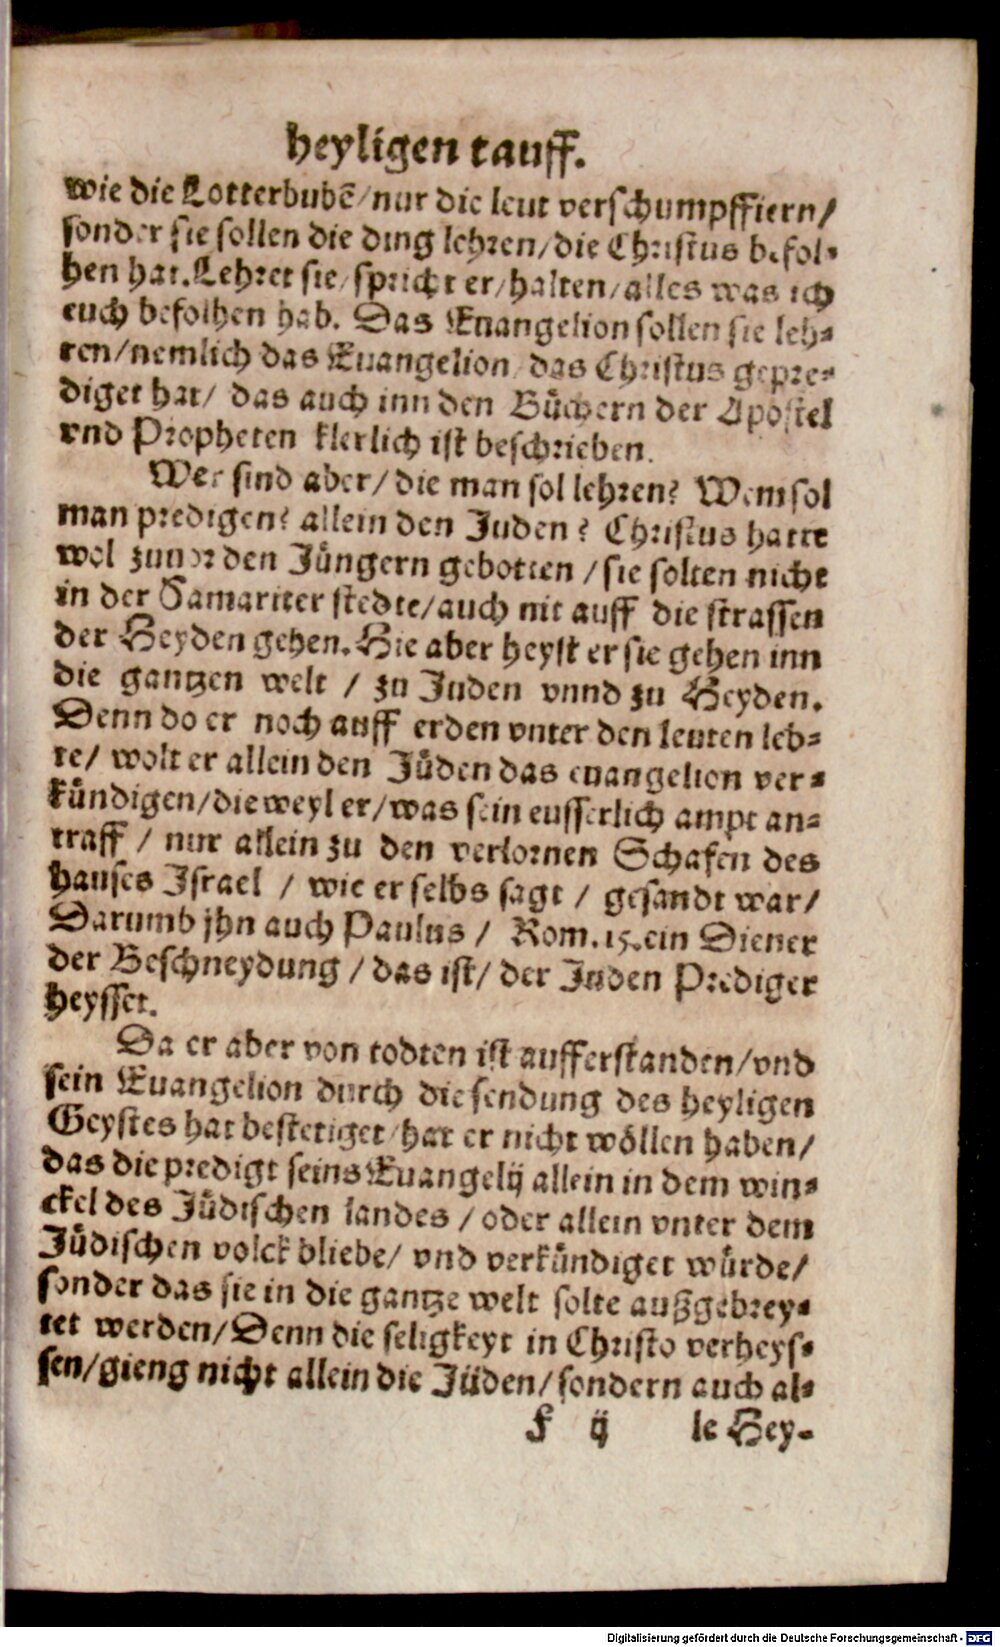 heyligen tauff.
wie die Lotterbubē/nur die leut verschumpffiern/
sonder sie sollen die ding lehren/die Christus befol-
hen hat. Lehret sie/spricht er/halten/alles was ich
euch befolhen hab. Das Euangelion sollen sie leh-
ren/nemlich das Euangelion/das Christus gepre-
diget hat/ das auch inn den Bůchern der Apostel
vnd Propheten klerlich ist beschrieben.
Wer sind aber/die man sol lehren? Wem sol
man predigen? allein den Juden? Christus hatte
wol zuuor den Jůngern gebotten/sie solten nicht
in der Samariter stedte/auch nit auff die strassen
der Heyden gehen. Hie aber heyst er sie gehen inn
die gantzen welt / zu Juden vnnd zu Heyden.
Denn do er noch auff erden vnter den leuten leb-
te/ wolt er allein den Jůden das euangelion ver-
kůndigen/die weyl er/was sein eusserlich ampt an-
traff / nur allein zu den verlornen Schafen des
hauses Israel / wie er selbs sagt / gesandt war/
Darumb jhn auch Paulus / Rom. 15. ein Diener
der Beschneydung/das ist/ der Juden Prediger
heysset.
Da er aber von todten ist aufferstanden/vnd
sein Euangelion durch die sendung des heyligen
Geystes hat bestetiget/hat er nicht wöllen haben/
das die predigt seins Euangelij allein in dem win-
ckel des Jůdischen landes / oder allein vnter dem
Jůdischen volck bliebe/ vnd verkůndiget wůrde/
sonder das sie in die gantze welt solte außgebrey-
tet werden/Denn die seligkeyt in Christo verheys-
sen/gieng nicht allein die Jüden/sondern auch al-
f ij le Hey-
Digitalisierung gefördert durch die Deutsche Forschungsgemeinschaft - DFG